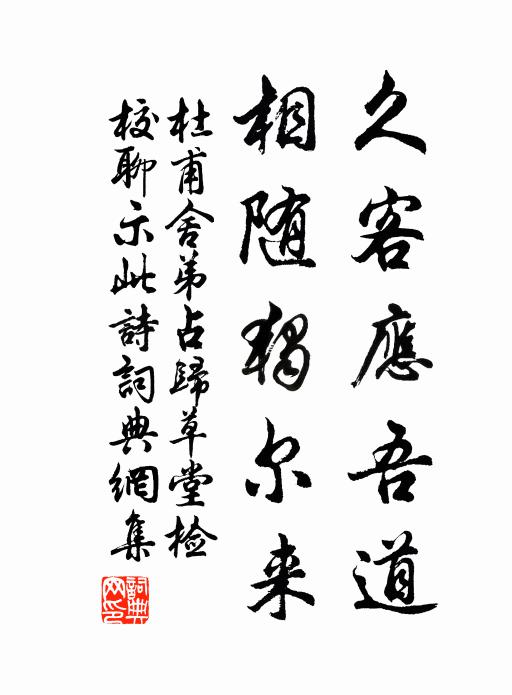 久客應吾道
相随獨尔来
杜甫舍弟占歸草堂檢
校聊示此詩詞典網集